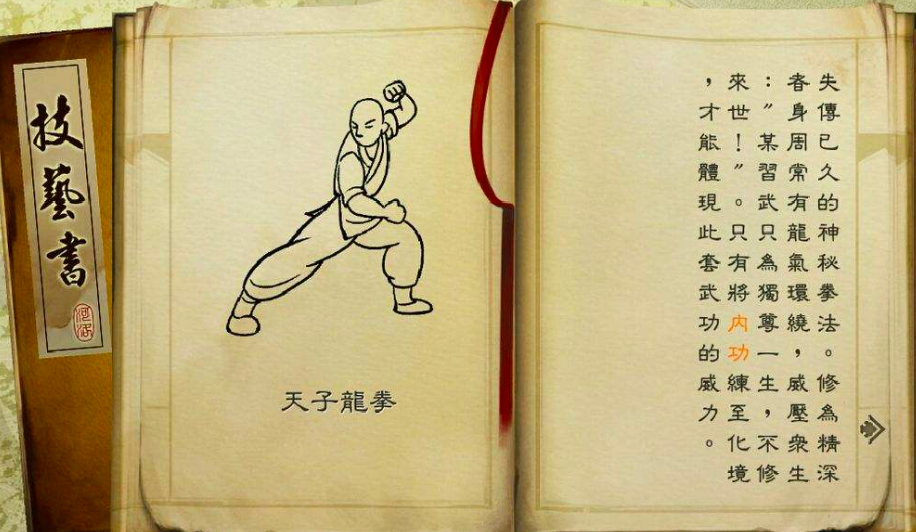 技藝書
河洛
天子龍拳
失傳已久的神秘拳法。修為精深
者身周常有龍氣環繞，威壓眾生
：〞某習武只為獨尊一生，不修
來世！〞。只有將內功練至化境
，才能體現此套武功的威力。